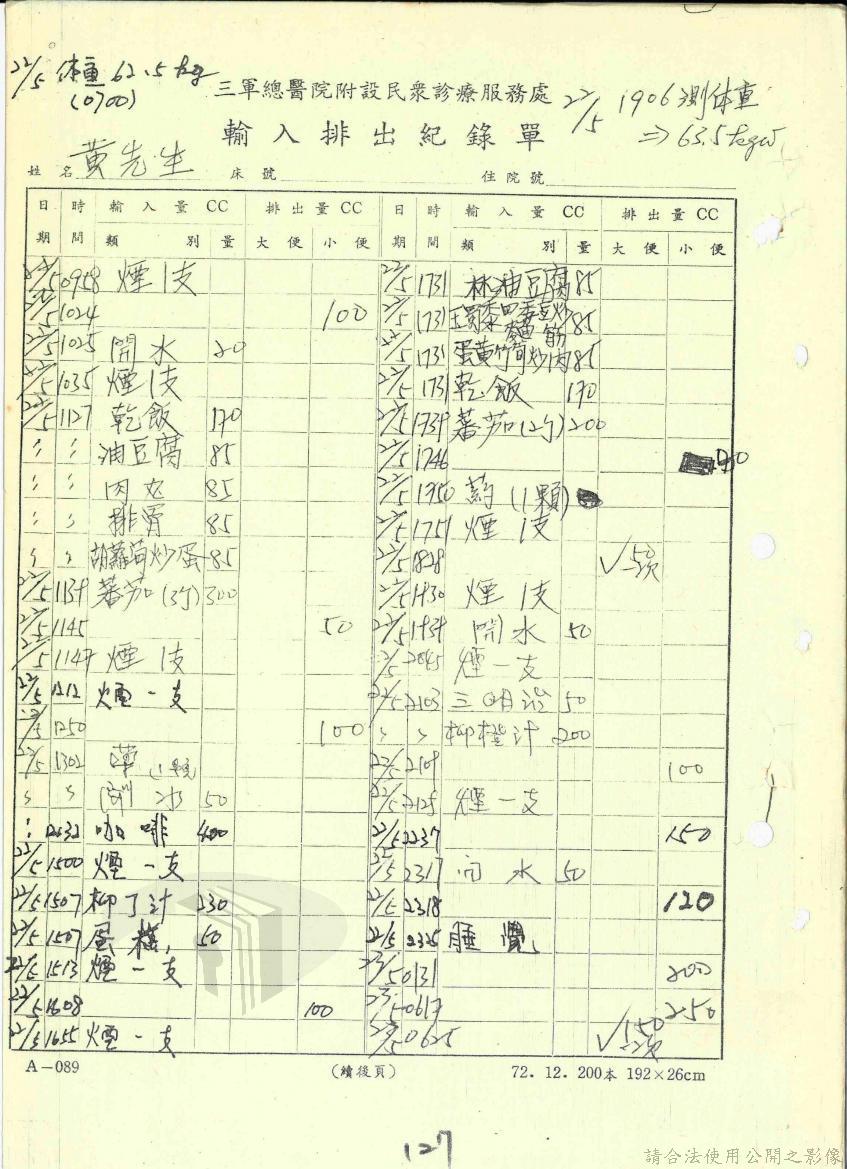 22/5 体重 62.5 kg
(0700)
三軍總醫院附設民眾診療服務處
22/5 1906 測体重
⇒ 63.5 kgw
輸入排出紀錄單
姓名 黃先生 床號 住院號
日期 時間 輸入量 CC 類別 量 排出量 CC 大便 小便
日期 時間 輸入量 CC 類別 量 排出量 CC 大便 小便
22/5 0958 煙1支
22/5 1024 100
22/5 1025 開水 20
22/5 1035 煙1支
22/5 1127 乾飯 170
〃 〃 油豆腐 85
〃 〃 肉丸 85
〃 〃 排骨 85
〃 〃 胡蘿蔔炒蛋 85
22/5 1139 蕃茄(3ケ) 300
22/5 1145 50
22/5 1147 煙1支
22/5 1212 煙一支
22/5 1250 100
22/5 1302 葯(1顆)
〃 〃 開水 50
〃 咖啡 400
22/5 1500 煙一支
22/5 1507 柳丁汁 230
22/5 1507 蛋糕 50
22/5 1513 煙一支
22/5 1608 100
22/5 1655 煙一支
22/5 1731 油豆腐 85
22/5 1731 炒 85
22/5 1731 蛋黃竹筍炒肉 85
22/5 1731 乾飯 170
22/5 1739 蕃茄(2ケ) 200
22/5 1746
22/5 1750 葯(1顆)
22/5 1751 煙1支
22/5 1828 ✓50 一次
22/5 1930 煙1支
22/5 1939 開水 50
22/5 2045 煙一支
22/5 2103 三明治 50
〃 〃 柳橙汁 200
22/5 2109 100
22/5 2125 煙一支
22/5 2237 150
22/5 2317 開水 50
22/5 2318 120
22/5 2325 睡覺
23/5 0131 200
23/5 0617 250
23/5 0625 ✓150 一次
A-089 (續後頁) 72.12.200本 192×26cm
127
請合法使用公開之影像